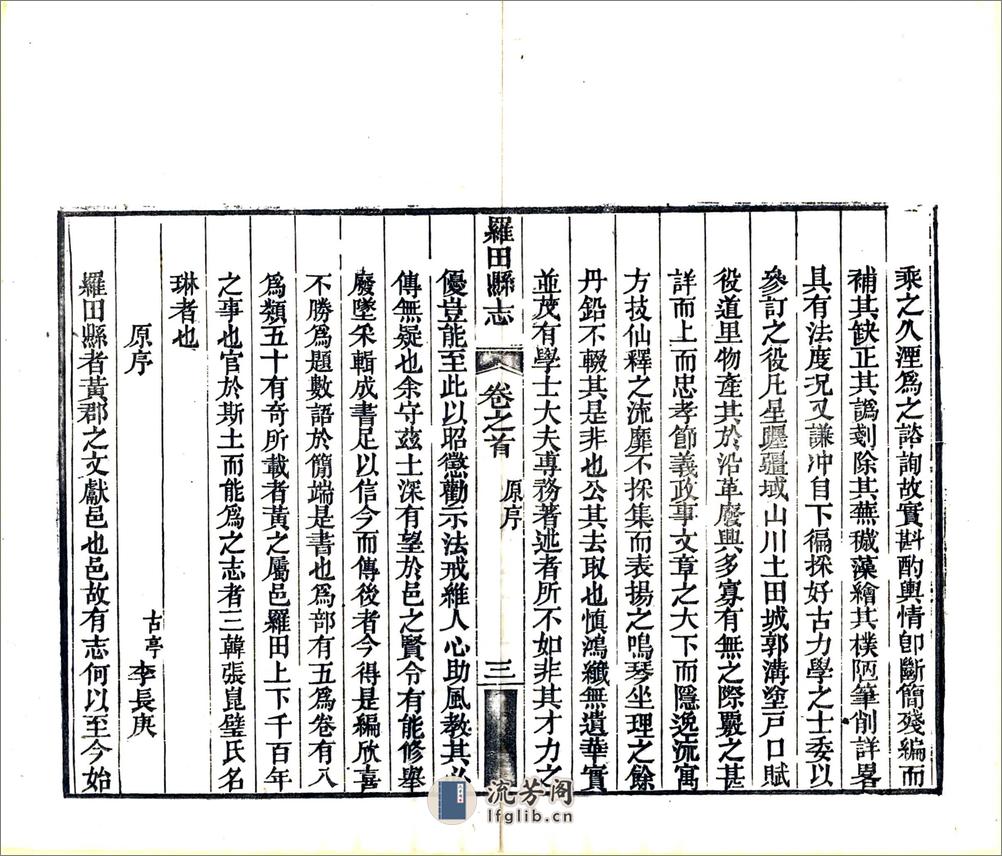 乘之久湮爲之諮詢故實斟酌輿情卽斷簡殘編而
補其缺正其譌剗除其蕪穢藻繪其樸陋筆削詳畧
具有法度況又謙冲自下徧採好古力學之士委以
參訂之役凡星躔疆域山川土田城郭溝塗戸口賦
役道里物產其於沿革廢興多寡有無之際覈之甚
詳而上而忠孝節義政事文章之大下而隱逸流寓
方技仙釋之流靡不採集而表揚之鳴琴坐理之餘
丹鉛不輟其是非也公其去取也慎鴻纖無遺華實
並茂有學士大夫専務著述者所不如非其才力之
羅田縣志 卷之首 原序 三
優豈能至此以昭懲勸示法戒維人心助風教其必
傳無疑也余守兹土深有望於邑之賢令有能修舉
廢墜采輯成書足以信今而傳後者今得是編欣喜
不勝爲題數語於簡端是書也爲部有五爲卷有八
爲類五十有奇所載者黃之屬邑羅田上下千百年
之事也官於斯土而能爲之志者三韓張崑璧氏名
琳者也
原序 古亭 李長庚
羅田縣者黃郡之文獻邑也邑故有志何以至今始
流芳阁
lfglib.cn